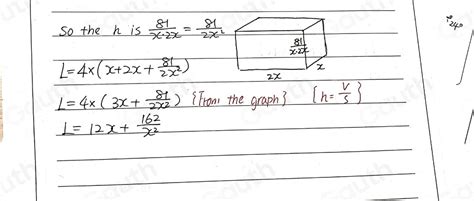 So the h is 81/x·2x = 81/2x²
81/x·2x
x
2x
L=4×(x+2x+ 81/2x²)
L=4×(3x+ 81/2x²) {From the graph} {h= V/S}
L=12x+ 162/x²
Gauth